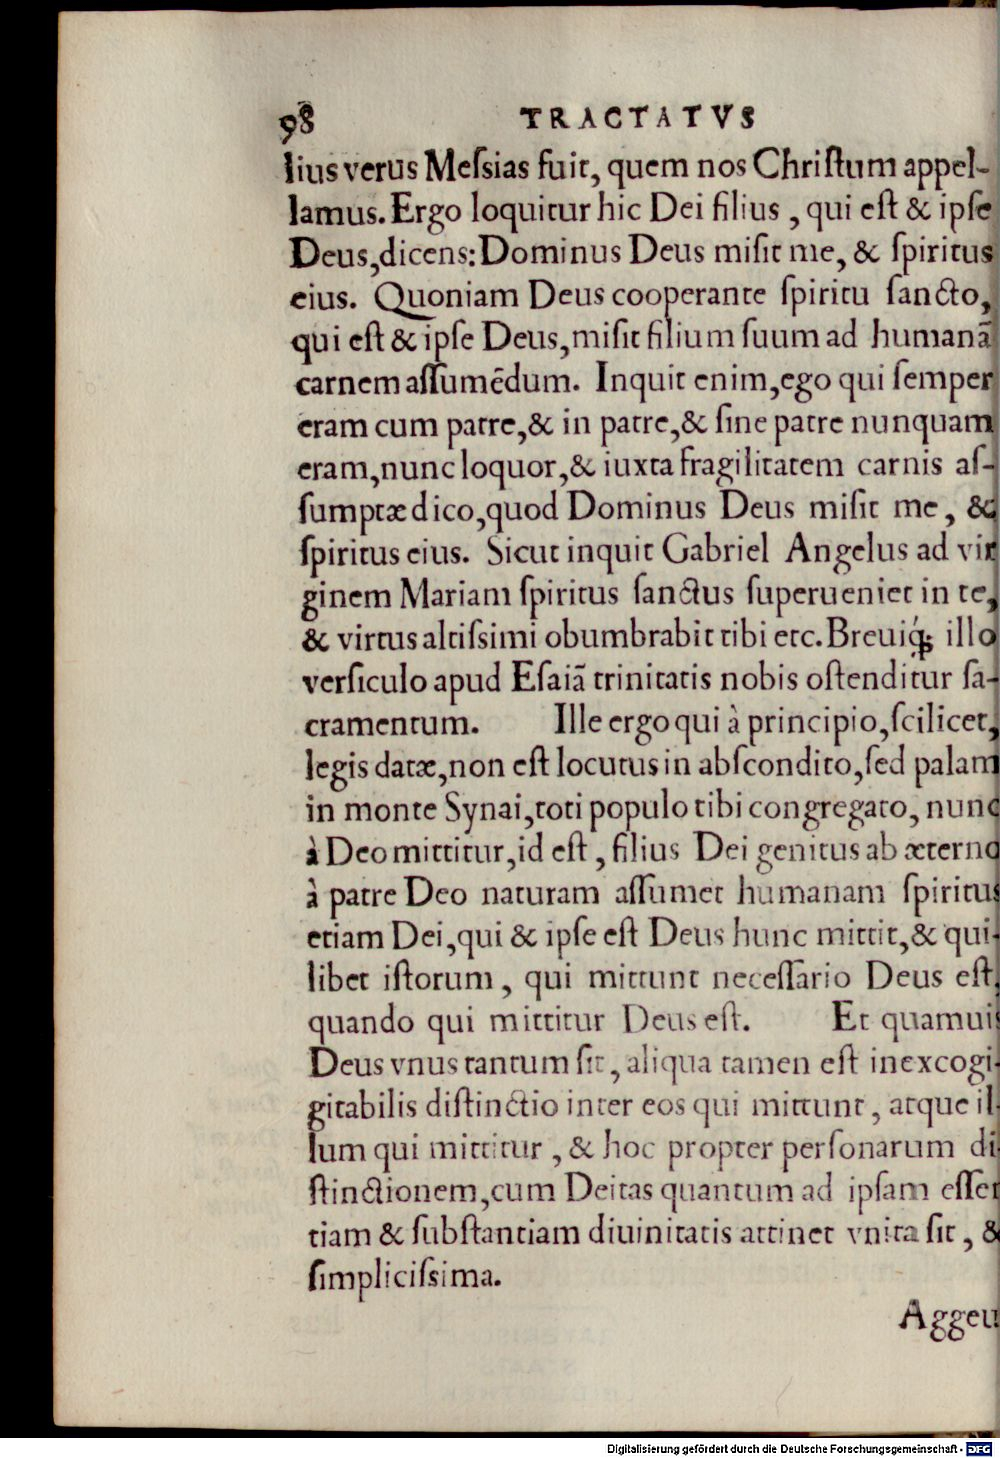 98 TRACTATVS
lius verus Meſsias fuit, quem nos Chriſtum appel-
lamus. Ergo loquitur hic Dei filius, qui eſt & ipſe
Deus, dicens: Dominus Deus miſit me, & ſpiritus
eius. Quoniam Deus cooperante ſpiritu ſancto,
qui eſt & ipſe Deus, miſit filium ſuum ad humanā
carnem aſſumēdum. Inquit enim, ego qui ſemper
eram cum patre, & in patre, & ſine patre nunquam
eram, nunc loquor, & iuxta fragilitatem carnis aſ-
ſumptæ dico, quod Dominus Deus miſit me, &
ſpiritus eius. Sicut inquit Gabriel Angelus ad vir
ginem Mariam ſpiritus ſanctus ſuperueniet in te,
& virtus altiſsimi obumbrabit tibi etc. Breuiq́; illo
verſiculo apud Eſaiā trinitatis nobis oſtenditur ſa-
cramentum. Ille ergo qui à principio, ſcilicet,
legis datæ, non eſt locutus in abſcondito, ſed palam
in monte Synai, toti populo tibi congregato, nunc
à Deo mittitur, id eſt, filius Dei genitus ab æterno
à patre Deo naturam aſſumet humanam ſpiritus
etiam Dei, qui & ipſe eſt Deus hunc mittit, & qui-
libet iſtorum, qui mittunt neceſſario Deus eſt,
quando qui mittitur Deus eſt. Et quamuis
Deus vnus tantum ſit, aliqua tamen eſt inexcogi-
gitabilis diſtinctio inter eos qui mittunt, atque il-
lum qui mittitur, & hoc propter perſonarum di-
ſtinctionem, cum Deitas quantum ad ipſam eſſen
tiam & ſubſtantiam diuinitatis attinet vnita ſit, &
ſimpliciſsima.
Aggeu
Digitalisierung gefördert durch die Deutsche Forschungsgemeinschaft - DFG